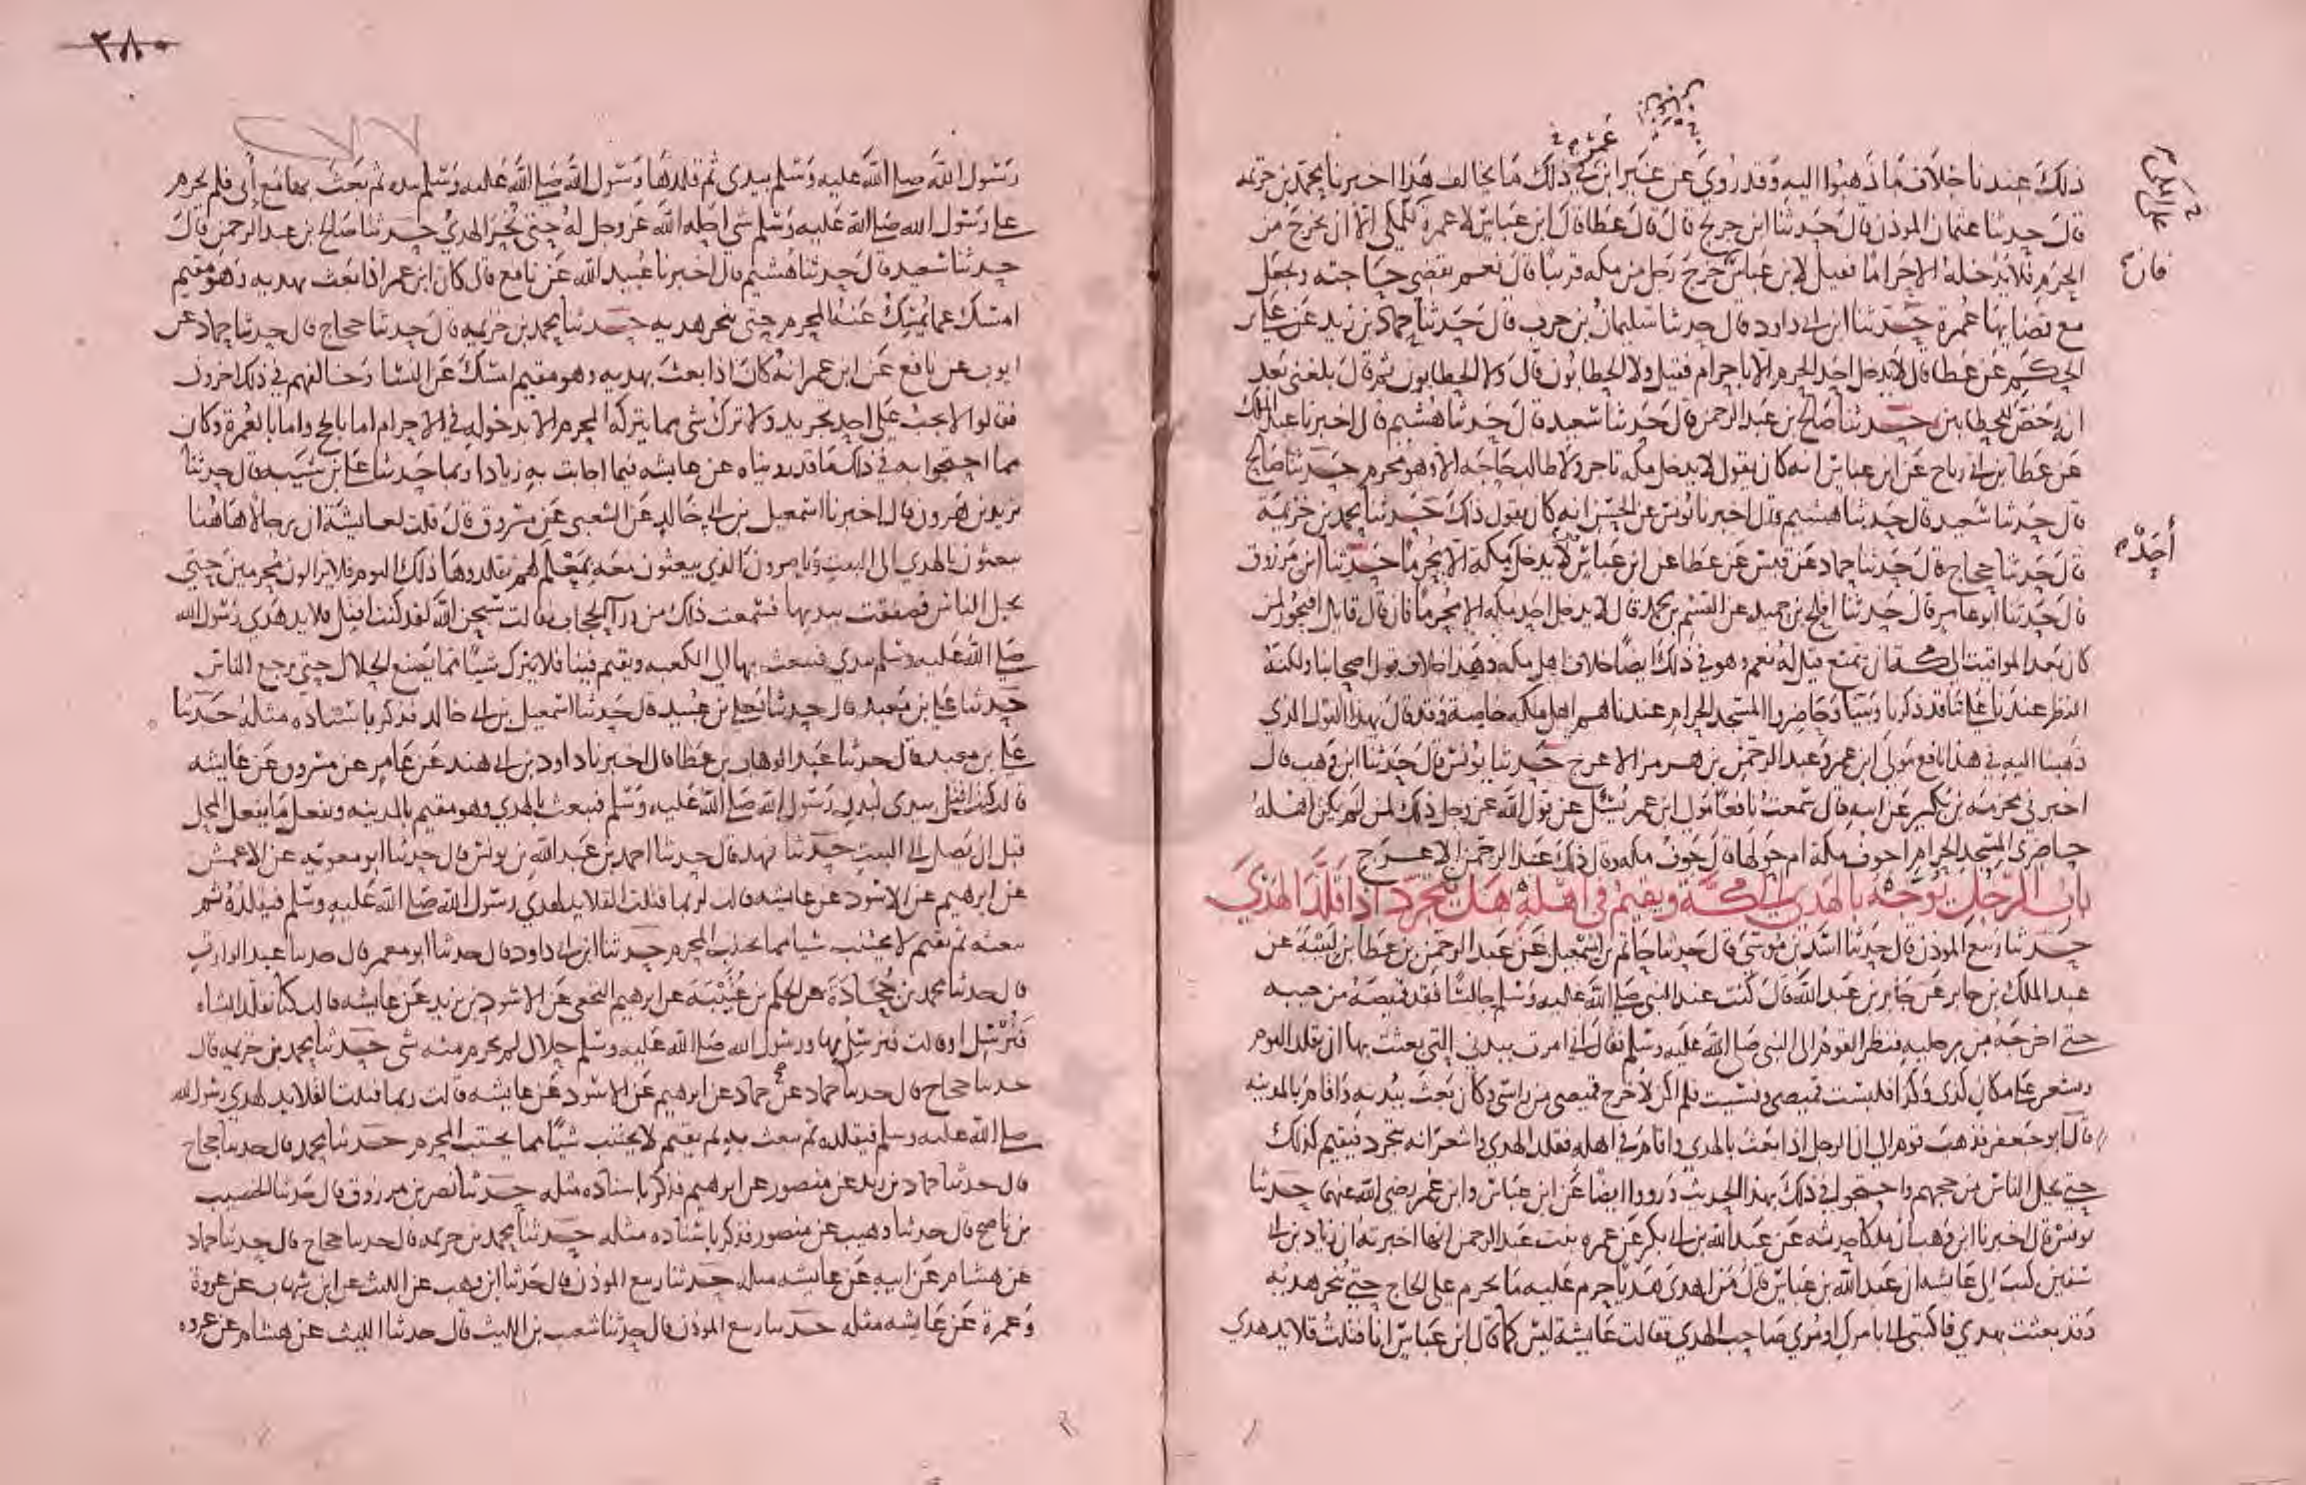 ذلك عندنا خلاف ما ذهبوا اليه وقد روي عن غير ابن في ذلك ما يخالف هذا اخبرنا محمد بن خزيمة
قال حدثنا عثمان الموذن قال حدثنا ابن جريج قال قال عطا قال ابن عباس لا عمرة للمكي الا ان يخرج من
الحرم فلا يدخله الا حراما فقيل لابن عباس خرج رجل من مكه قريبا قال نعم يقضي حاجته ويجعل
مع قضايها عمرة حدثنا ابن ابي داود قال حدثنا سليمان بن حرب قال حدثنا حماد بن زيد عن علي بن
الحكم عن عطا قال لا يدخل احد الحرم الا باحرام فقيل ولا الحطابون قال ولا الحطابون ثم قال بلغني بعد
انه رخص للحطابين حدثنا صالح بن عبد الرحمن قال حدثنا سعيد قال حدثنا هشيم قال اخبرنا عبد الملك
عن عطا بن ابي رباح عن ابن عباس انه كان يقول لا يدخل مكه تاجر ولا طالب حاجه الا وهو محرم حدثنا صالح
قال حدثنا سعيد قال حدثنا هشيم قال اخبرنا يونس عن الحسن انه كان يقول ذلك حدثنا محمد بن خزيمة
قال حدثنا حجاج قال حدثنا حماد عن قيس عن عطا عن ابن عباس لا يدخل مكة الا محرما حدثنا ابن مرزوق
قال حدثنا ابو عامر قال حدثنا افلح بن حميد عن القسم بن محمد قال لا يدخل احد مكه الا محرما فان قال قايل افيجوز لمن
كان بعد المواقيت الى مكة ان يتمتع قيل له نعم وهو في ذلك ايضا خلاف اهل مكه وهذا خلاف قول اصحابنا ولكنه
النظر عندنا على ما قد ذكرنا وبينا وحاضروا المسجد الحرام عندنا هم اهل مكه خاصة وقد قال بهذا القول الذي
ذهبنا اليه في هذا نافع مولى ابن عمر وعبد الرحمن بن هرمز الاعرج حدثنا يونس قال حدثنا ابن وهب قال
اخبرني مخرمه بن بكير عن ابيه قال سمعت نافعا مولى ابن عمر يسئل عن قول الله عز وجل ذلك لمن لم يكن اهله
حاضري المسجد الحرام اجوف مكة ام حولها قال جوف مكه وقال ذلك عبد الرحمن الاعرج
باب الرجل يوجه بالهدي الى مكة ويقيم في اهله هل يتجرد اذا قلد الهدي
حدثنا ربيع الموذن قال حدثنا اسد بن موسى قال حدثنا حاتم بن اسمعيل عن عبد الرحمن بن عطا بن لبيبة عن
عبد الملك بن جابر عن جابر بن عبد الله قال كنت عند النبي صلى الله عليه وسلم جالسا فقد قميصه من جيبه
حتى اخرجه من رجليه فنظر القوم الى النبي صلى الله عليه وسلم فقال اني امرت ببدني التي بعثت بها ان يقلد اليوم
ويشعر على مكان كذى وكذا فلبست قميصي ونسيت فلم اكن لاخرج قميصي من راسي وكان بعث ببدنه واقام بالمدينه
قال ابو جعفر فذهب قوم الى ان الرجل اذا بعث بالهدي واقام في اهله فقلد الهدي واشعر انه يتجرد فيقيم كذلك
حتى يحل الناس من حجهم واحتجوا في ذلك بهذا الحديث ورووا ايضا عن ابن عباس وابن عمر رضي الله عنهما حدثنا
يونس قال اخبرنا ابن وهب ان ملكا حدثه عن عبد الله بن ابي بكر عن عمره بنت عبد الرحمن انها اخبرته ان زياد بن ابي
سفين كتب الى عايشه ان عبد الله بن عباس قال من اهدى هديا حرم عليه ما يحرم على الحاج حتى ينحر هديه
وقد بعثت بهدي فاكتبي الي بامرك او مري صاحب الهدي فقالت عايشة ليس كما قال ابن عباس انا فتلت قلايد هدي
فان
أحده
٢٨٠
رسول الله صلى الله عليه وسلم بيدي ثم قلدها رسول الله صلى الله عليه وسلم بيده ثم بعث بها مع أبي فلم يحرم
على رسول الله صلى الله عليه وسلم شي احله الله عز وجل له حتى نحر الهدي حدثنا صالح بن عبد الرحمن قال
حدثنا سعيد قال حدثنا هشيم قال اخبرنا عبيد الله عن نافع قال كان ابن عمر اذا بعث بهديه وهو مقيم
امسك عما يمسك عنه المحرم حتى ينحر هديه حدثنا محمد بن خزيمه قال حدثنا حجاج قال حدثنا حماد عن
ايوب عن نافع عن ابن عمر انه كان اذا بعث بهديه وهو مقيم امسك عن النسا وخالفهم في ذلك اخرون
فقالوا لا يجب على احد تجريد ولا ترك شي مما يتركه المحرم الا بدخوله في الاحرام اما بالحج واما بالعمرة وكان
مما احتجوا به في ذلك ما قد رويناه عن عايشه فيما اجابت به زيادا وبما حدثنا علي بن شيبه قال حدثنا
يزيد بن هرون قال اخبرنا اسمعيل بن ابي خالد عن الشعبي عن مسروق قال قلت لعايشة ان رجالا هاهنا
يبعثون بالهدي الى البيت ويامرون الذي يبعثون معه بمعلم لهم يقلدوها ذلك اليوم فلا يزالون محرمين حتى
يحل الناس فصفقت بيديها فسمعت ذلك من ورآ الحجاب فقالت سبحن الله لقد كنت افتل قلايد هدي رسول الله
صلى الله عليه وسلم بيدي فيبعث بها الى الكعبه ويقيم فينا فلا يترك شيا مما يصنع الحلال حتى يرجع الناس
حدثنا علي بن معبد قال حدثنا يعلى بن عبيد قال حدثنا اسمعيل بن ابي خالد فذكر باسناده مثله حدثنا
علي بن معبد قال حدثنا عبد الوهاب بن عطا قال اخبرنا داود بن ابي هند عن عامر عن مسروق عن عايشه
قالت كنت افتل بيدي لبدن رسول الله صلى الله عليه وسلم فيبعث بالهدي وهو مقيم بالمدينه ويفعل ما يفعل المحل
قبل ان يصل الى البيت حدثنا فهد قال حدثنا احمد بن عبد الله بن يونس قال حدثنا ابو معويه عن الاعمش
عن ابرهيم عن الاسود عن عايشه قالت لربما فتلت القلايد لهدي رسول الله صلى الله عليه وسلم فيقلده ثم
يبعثه ثم يقيم لا يجتنب شيا مما يجتنب المحرم حدثنا ابن ابي داود قال حدثنا ابو معمر قال حدثنا عبد الوارث
قال حدثنا محمد بن جحادة عن الحكم بن عتيبة عن ابرهيم النخعي عن الاسود بن يزيد عن عايشه قالت كنا نقلد الشاه
فنرسل او قالت فنرسل بها ورسول الله صلى الله عليه وسلم حلال لم يحرم منه شي حدثنا محمد بن خزيمه قال
حدثنا حجاج قال حدثنا حماد عن حماد عن ابرهيم عن الاسود عن عايشه قالت ربما فتلت القلايد لهدي رسول الله
صلى الله عليه وسلم فيقلده ثم يبعث به ثم يقيم لا يجتنب شيا مما يجتنب المحرم حدثنا محمد قال حدثنا حجاج
قال حدثنا حماد بن زيد عن منصور عن ابرهيم فذكر باسناده مثله حدثنا نصر بن مرزوق قال حدثنا الخصيب
بن ناصح قال حدثنا وهيب عن منصور فذكر باسناده مثله حدثنا محمد بن خزيمه قال حدثنا حجاج قال حدثنا حماد
عن هشام عن ابيه عن عايشه مثله حدثنا ربيع الموذن قال حدثنا ابن وهب عن الليث عن ابن شهاب عن عروة
وعمرة عن عايشه مثله حدثنا ربيع الموذن قال حدثنا شعيب بن الليث قال حدثنا الليث عن هشام عن عروه